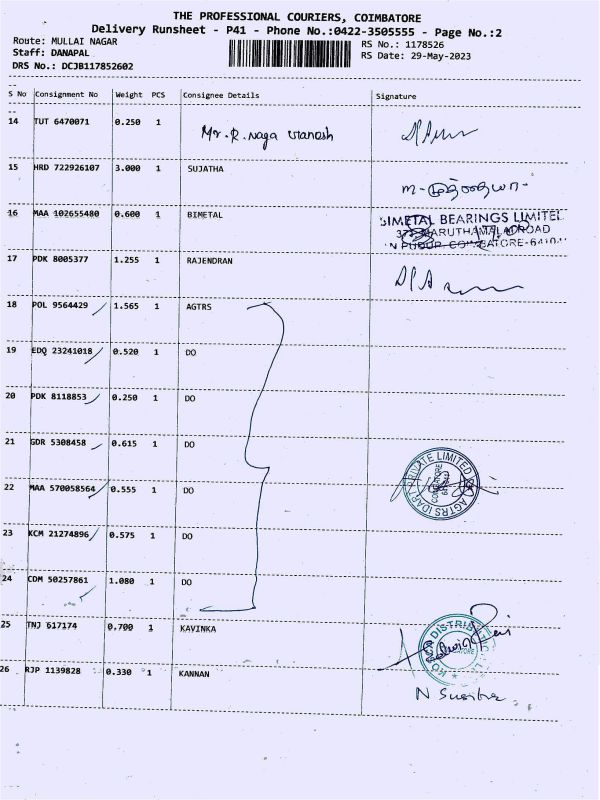 THE PROFESSIONAL COURIERS, COIMBATORE
Delivery Runsheet - P41 - Phone No.:0422-3505555 - Page No.:2
Route: MULLAI NAGAR
Staff: DANAPAL
DRS No.: DCJB117852602
RS No.: 1178526
RS Date: 29-May-2023
S No Consignment No Weight PCS Consignee Details Signature
14 TUT 6470071 0.250 1 Mr. R. Naga
15 HRD 722926107 3.000 1 SUJATHA
16 MAA 102655480 0.600 1 BIMETAL
BIMETAL BEARINGS LIMITED
17 PDK 8005377 1.255 1 RAJENDRAN
18 POL 9564429 1.565 1 AGTRS
19 EDQ 23241018 0.520 1 DO
20 PDK 8118853 0.250 1 DO
21 GDR 5308458 0.615 1 DO
22 MAA 570058564 0.555 1 DO
PRIVATE LIMITED
23 KCM 21274896 0.575 1 DO
24 CDM 50257861 1.080 1 DO
25 TNJ 617174 0.700 1 KAVINKA
26 RJP 1139828 0.330 1 KANNAN